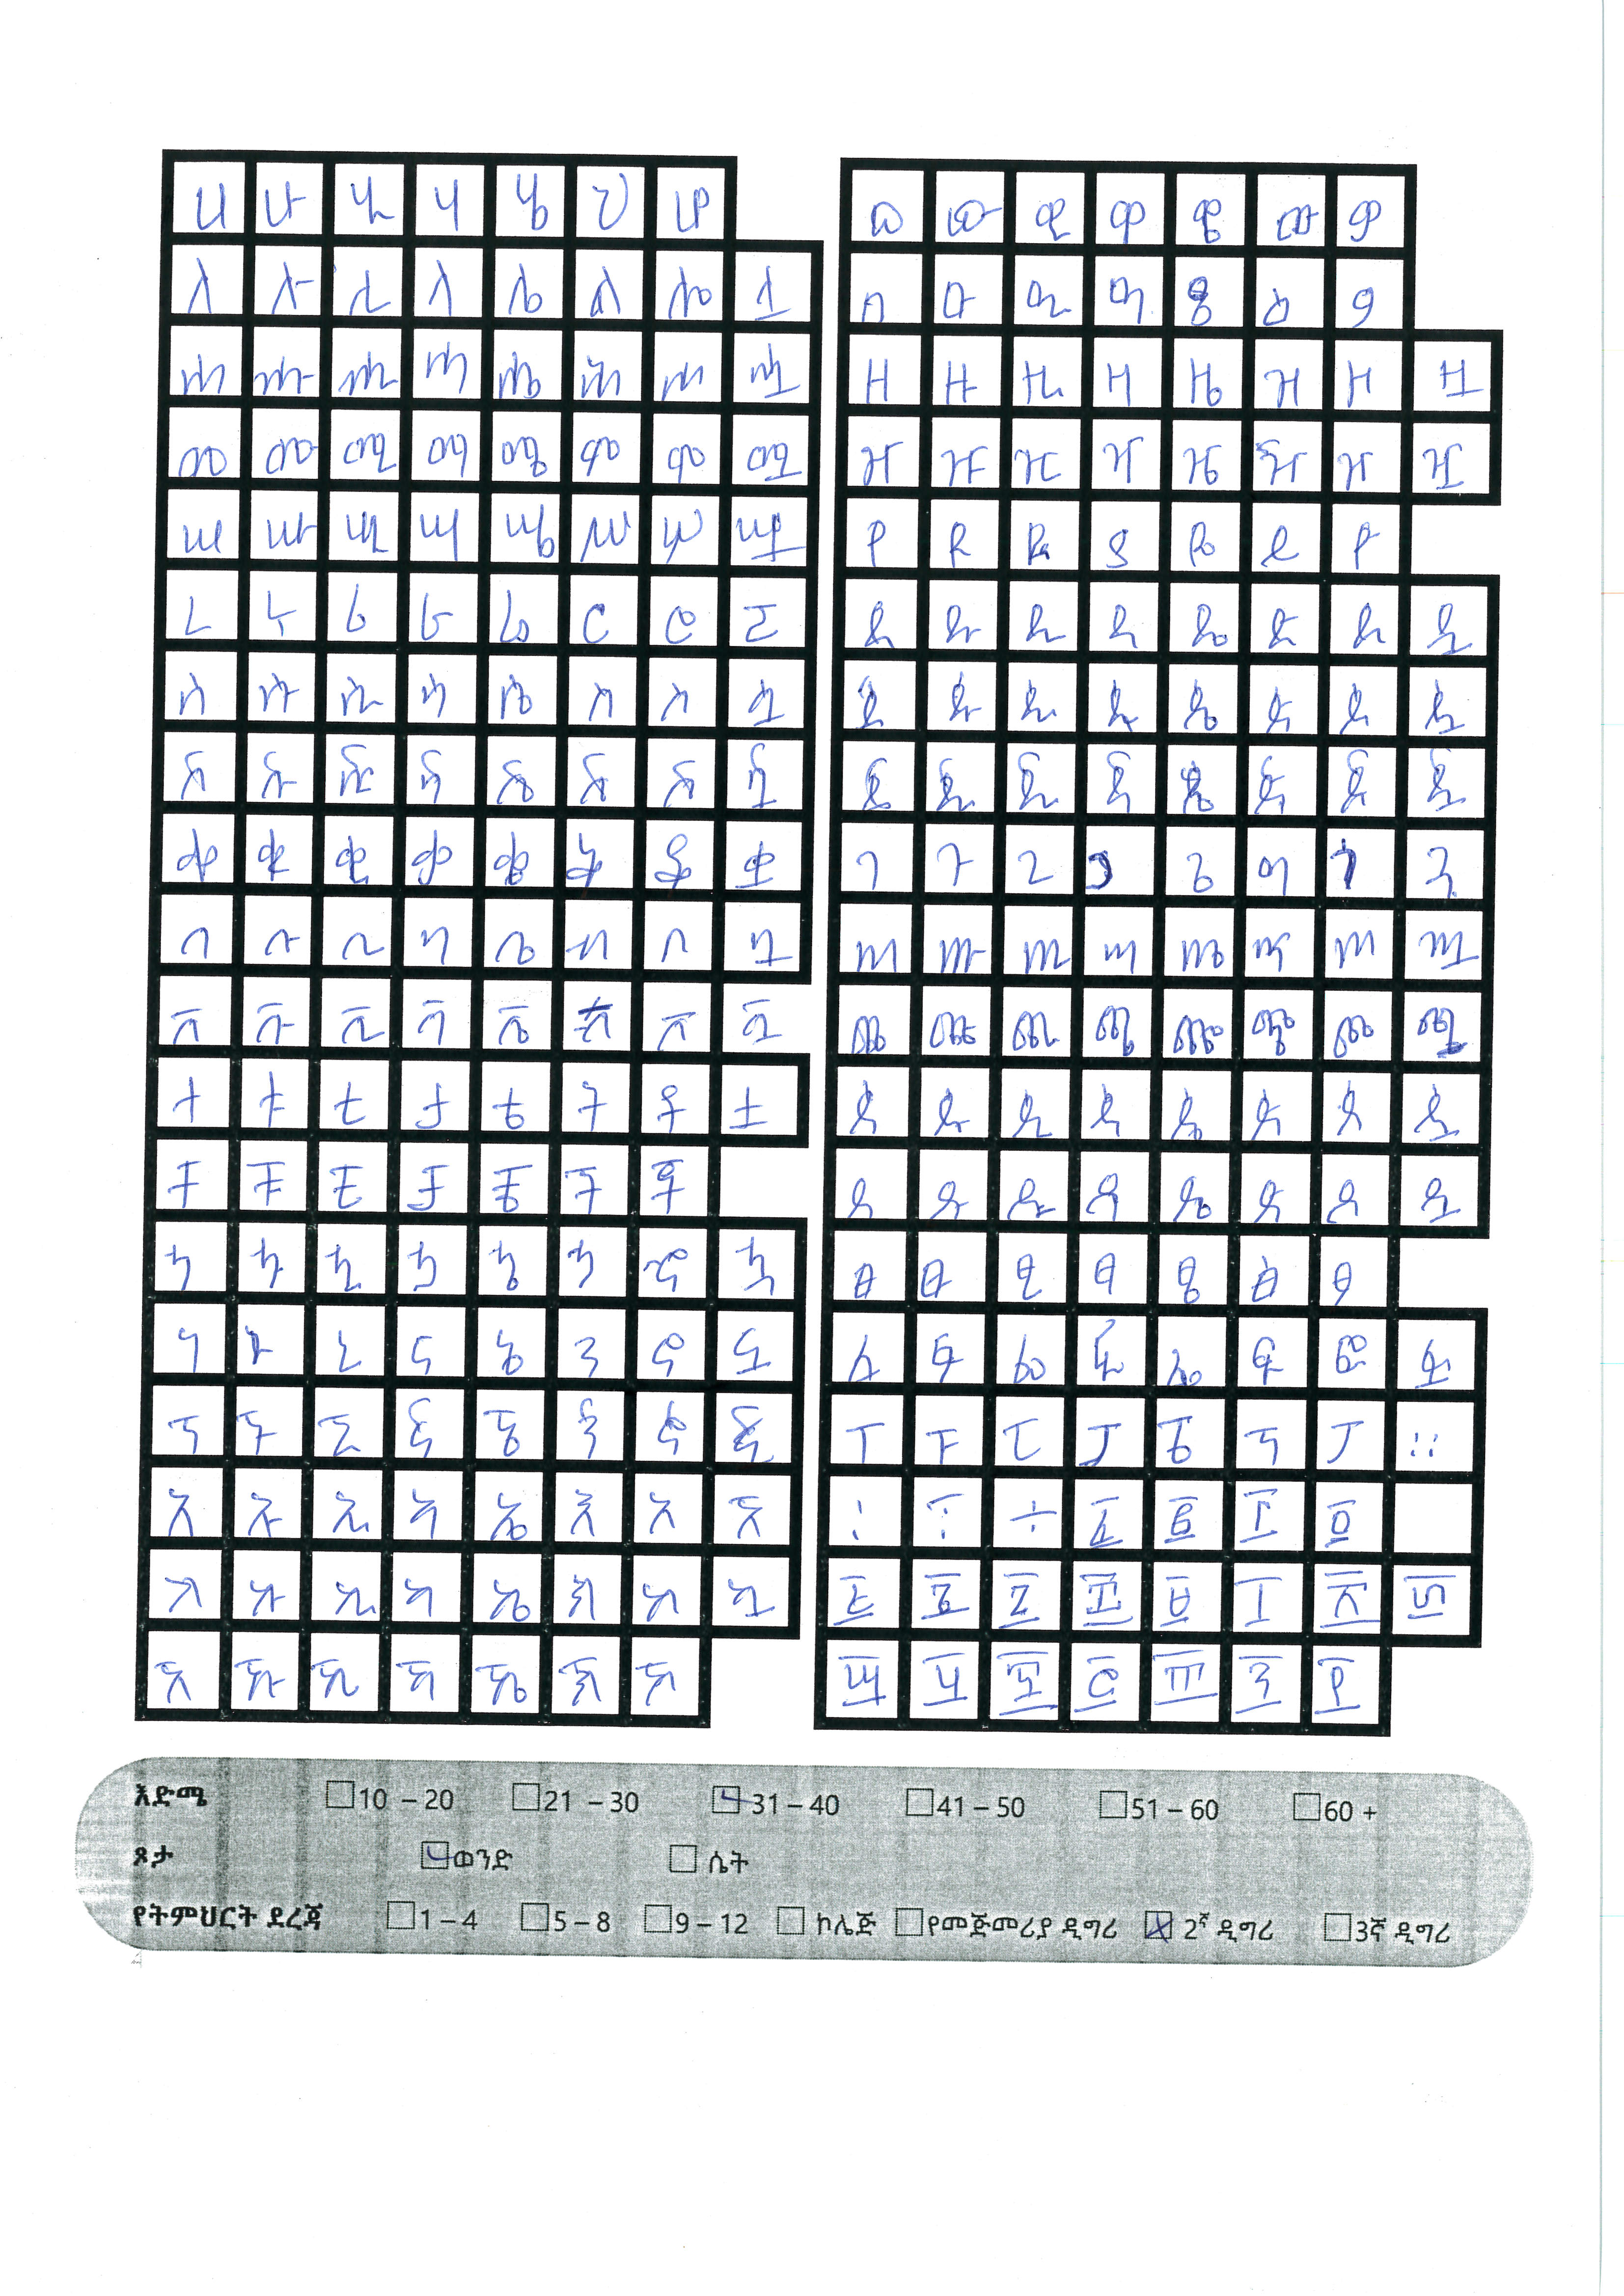 ሀ ሁ ሂ ሃ ሄ ህ ሆ
ለ ሉ ሊ ላ ሌ ል ሎ ሏ
ሐ ሑ ሒ ሓ ሔ ሕ ሖ ሗ
መ ሙ ሚ ማ ሜ ም ሞ ሟ
ሠ ሡ ሢ ሣ ሤ ሥ ሦ ሧ
ረ ሩ ሪ ራ ሬ ር ሮ ሯ
ሰ ሱ ሲ ሳ ሴ ስ ሶ ሷ
ሸ ሹ ሺ ሻ ሼ ሽ ሾ ሿ
ቀ ቁ ቂ ቃ ቄ ቅ ቆ ቋ
በ ቡ ቢ ባ ቤ ብ ቦ ቧ
ቨ ቩ ቪ ቫ ቬ ቭ ቮ ቯ
ተ ቱ ቲ ታ ቴ ት ቶ ቷ
ቸ ቹ ቺ ቻ ቼ ች ቾ
ኀ ኁ ኂ ኃ ኄ ኅ ኆ ኋ
ነ ኑ ኒ ና ኔ ን ኖ ኗ
ኘ ኙ ኚ ኛ ኜ ኝ ኞ ኟ
አ ኡ ኢ ኣ ኤ እ ኦ ኧ
ከ ኩ ኪ ካ ኬ ክ ኮ ኳ
ኸ ኹ ኺ ኻ ኼ ኽ ኾ
ወ ዉ ዊ ዋ ዌ ው ዎ
ዐ ዑ ዒ ዓ ዔ ዕ ዖ
ዘ ዙ ዚ ዛ ዜ ዝ ዞ ዟ
ዠ ዡ ዢ ዣ ዤ ዥ ዦ ዧ
የ ዩ ዪ ያ ዬ ይ ዮ
ደ ዱ ዲ ዳ ዴ ድ ዶ ዷ
ጀ ጁ ጂ ጃ ጄ ጅ ጆ ጇ
ገ ጉ ጊ ጋ ጌ ግ ጎ ጓ
ጠ ጡ ጢ ጣ ጤ ጥ ጦ ጧ
ጨ ጩ ጪ ጫ ጬ ጭ ጮ ጯ
ጰ ጱ ጲ ጳ ጴ ጵ ጶ ጷ
ጸ ጹ ጺ ጻ ጼ ጽ ጾ ጿ
ፀ ፁ ፂ ፃ ፄ ፅ ፆ
ፈ ፉ ፊ ፋ ፌ ፍ ፎ ፏ
ፐ ፑ ፒ ፓ ፔ ፕ ፖ ።
፩ ፪ ፫ ፬
፭ ፮ ፯ ፰ ፱ ፲ ፳ ፴
፵ ፶ ፷ ፸ ፹ ፺ ፻
እድሜ 10 – 20 21 – 30 31 – 40 41 – 50 51 – 60 60 +
ጾታ ወንድ ሴት
የትምህርት ደረጃ 1 – 4 5 – 8 9 – 12 ኮሌጅ የመጀመሪያ ዲግሪ 2ኛ ዲግሪ 3ኛ ዲግሪ